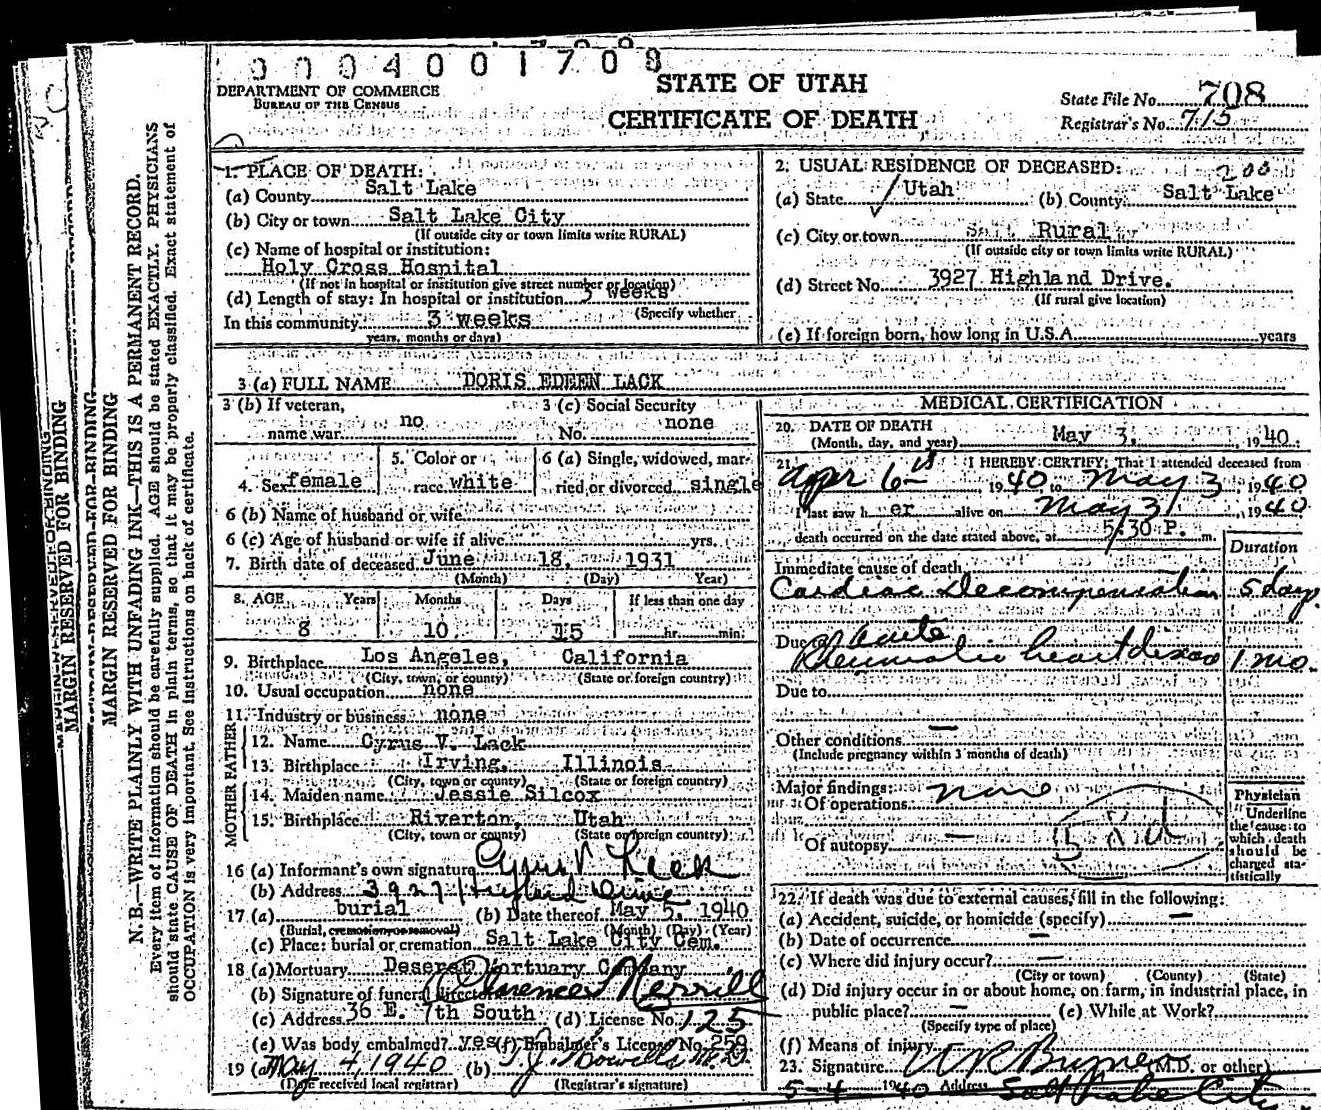 0004001708
DEPARTMENT OF COMMERCE
BUREAU OF THE CENSUS
STATE OF UTAH
CERTIFICATE OF DEATH
State File No. 708
Registrar's No. 715
MARGIN RESERVED FOR BINDING
MARGIN RESERVED FOR BINDING
N. B.—WRITE PLAINLY WITH UNFADING INK—THIS IS A PERMANENT RECORD.
Every item of information should be carefully supplied. AGE should be stated EXACTLY. PHYSICIANS
should state CAUSE OF DEATH in plain terms, so that it may be properly classified. Exact statement of
OCCUPATION is very important. See instructions on back of certificate.
1. PLACE OF DEATH:
(a) County Salt Lake
(b) City or town Salt Lake City
(If outside city or town limits write RURAL)
(c) Name of hospital or institution:
Holy Cross Hospital
(If not in hospital or institution give street number or location)
(d) Length of stay: In hospital or institution 3 weeks
(Specify whether
In this community 3 weeks
years, months or days)
2. USUAL RESIDENCE OF DECEASED:
200
(a) State Utah (b) County Salt Lake
(c) City or town Rural
(If outside city or town limits write RURAL)
(d) Street No. 3927 Highland Drive.
(If rural give location)
(e) If foreign born, how long in U.S.A. years
3 (a) FULL NAME DORIS EDEEN LACK
3 (b) If veteran, 3 (c) Social Security
name war no No. none
4. Sex female 5. Color or race white 6 (a) Single, widowed, married or divorced single
6 (b) Name of husband or wife
6 (c) Age of husband or wife if alive yrs.
7. Birth date of deceased June 18, 1931
(Month) (Day) Year)
8. AGE Years Months Days If less than one day
8 10 15 hr. min.
9. Birthplace Los Angeles, California
(City, town, or county) (State or foreign country)
10. Usual occupation none
11. Industry or business none
FATHER
12. Name Cyrus V. Lack
13. Birthplace Irving, Illinois
(City, town or county) (State or foreign country)
MOTHER
14. Maiden name Jessie Silcox
15. Birthplace Riverton, Utah
(City, town or county) (State or foreign country)
16 (a) Informant's own signature Cyrus V Lack
(b) Address 3927 Highland Drive
17 (a) burial (b) Date thereof May 5, 1940
(Burial, cremation or removal) (Month) (Day) (Year)
(c) Place: burial or cremation Salt Lake City Cem.
18 (a) Mortuary Deseret Mortuary Company
(b) Signature of funeral director Clarence Merrill
(c) Address 36 E. 7th South (d) License No. 125
(e) Was body embalmed? yes (f) Embalmer's License No. 259
19 (a) May 4, 1940 (b) T. J. Howells M.D.
(Date received local registrar) (Registrar's signature)
MEDICAL CERTIFICATION
20. DATE OF DEATH
(Month, day, and year) May 3, 1940
21. I HEREBY CERTIFY: That I attended deceased from
Apr 6th 1940 to May 3, 1940
I last saw her alive on May 3, 1940
death occurred on the date stated above, at 5/30 P. m.
Duration
Immediate cause of death
Cardiac Decompensation 5 days
Due to Acute
Rheumatic heart disease 1 mo.
Due to
Other conditions —
(Include pregnancy within 3 months of death)
Major findings:
Of operations none
Of autopsy —
Physician
Underline
the cause to
which death
should be
charged sta-
tistically
22. If death was due to external causes, fill in the following:
(a) Accident, suicide, or homicide (specify) —
(b) Date of occurrence —
(c) Where did injury occur? —
(City or town) (County) (State)
(d) Did injury occur in or about home, on farm, in industrial place, in
public place? — (e) While at Work?
(Specify type of place)
(f) Means of injury
23. Signature (M.D. or other)
5-4 1940 Address Salt Lake City